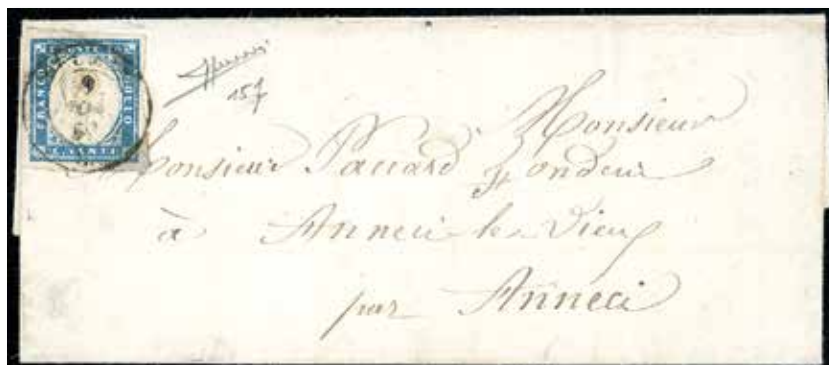 FRANCO
BOLLO
157
Monsieur
Monsieur Paccard Fondeur
à Anneci le Vieux
par Anneci